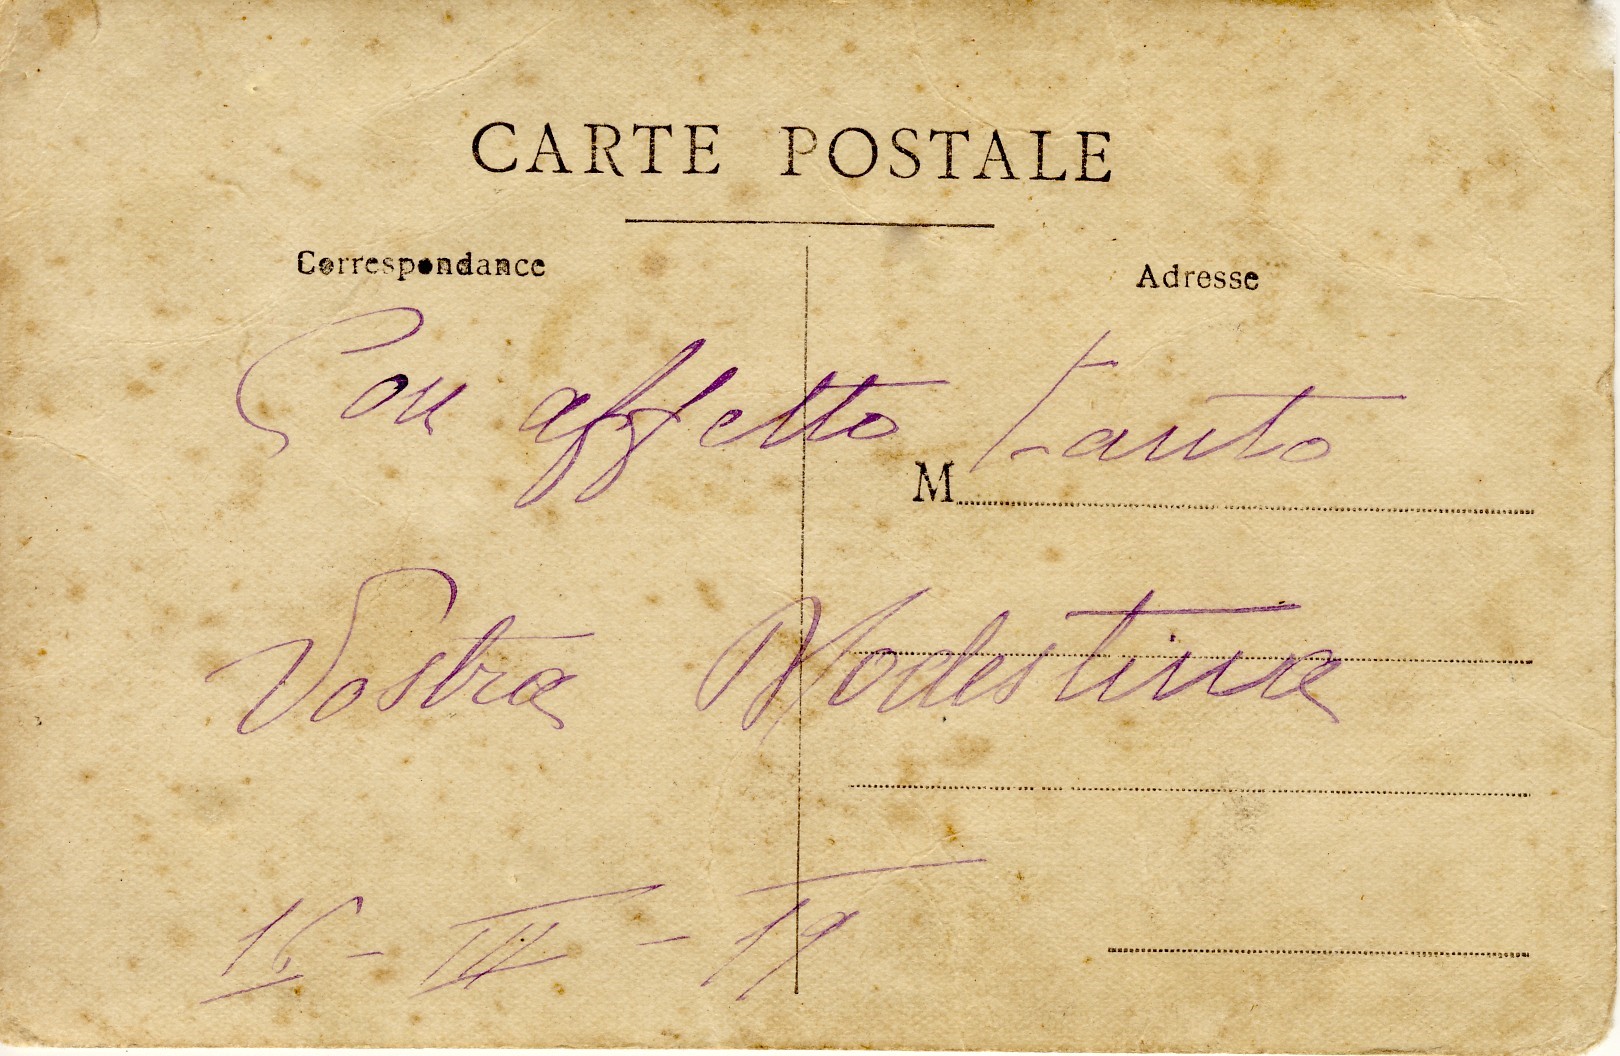 CARTE POSTALE
Correspondance
Adresse
Con affetto tanto
M
Vostra Modestina
16 - III - 19